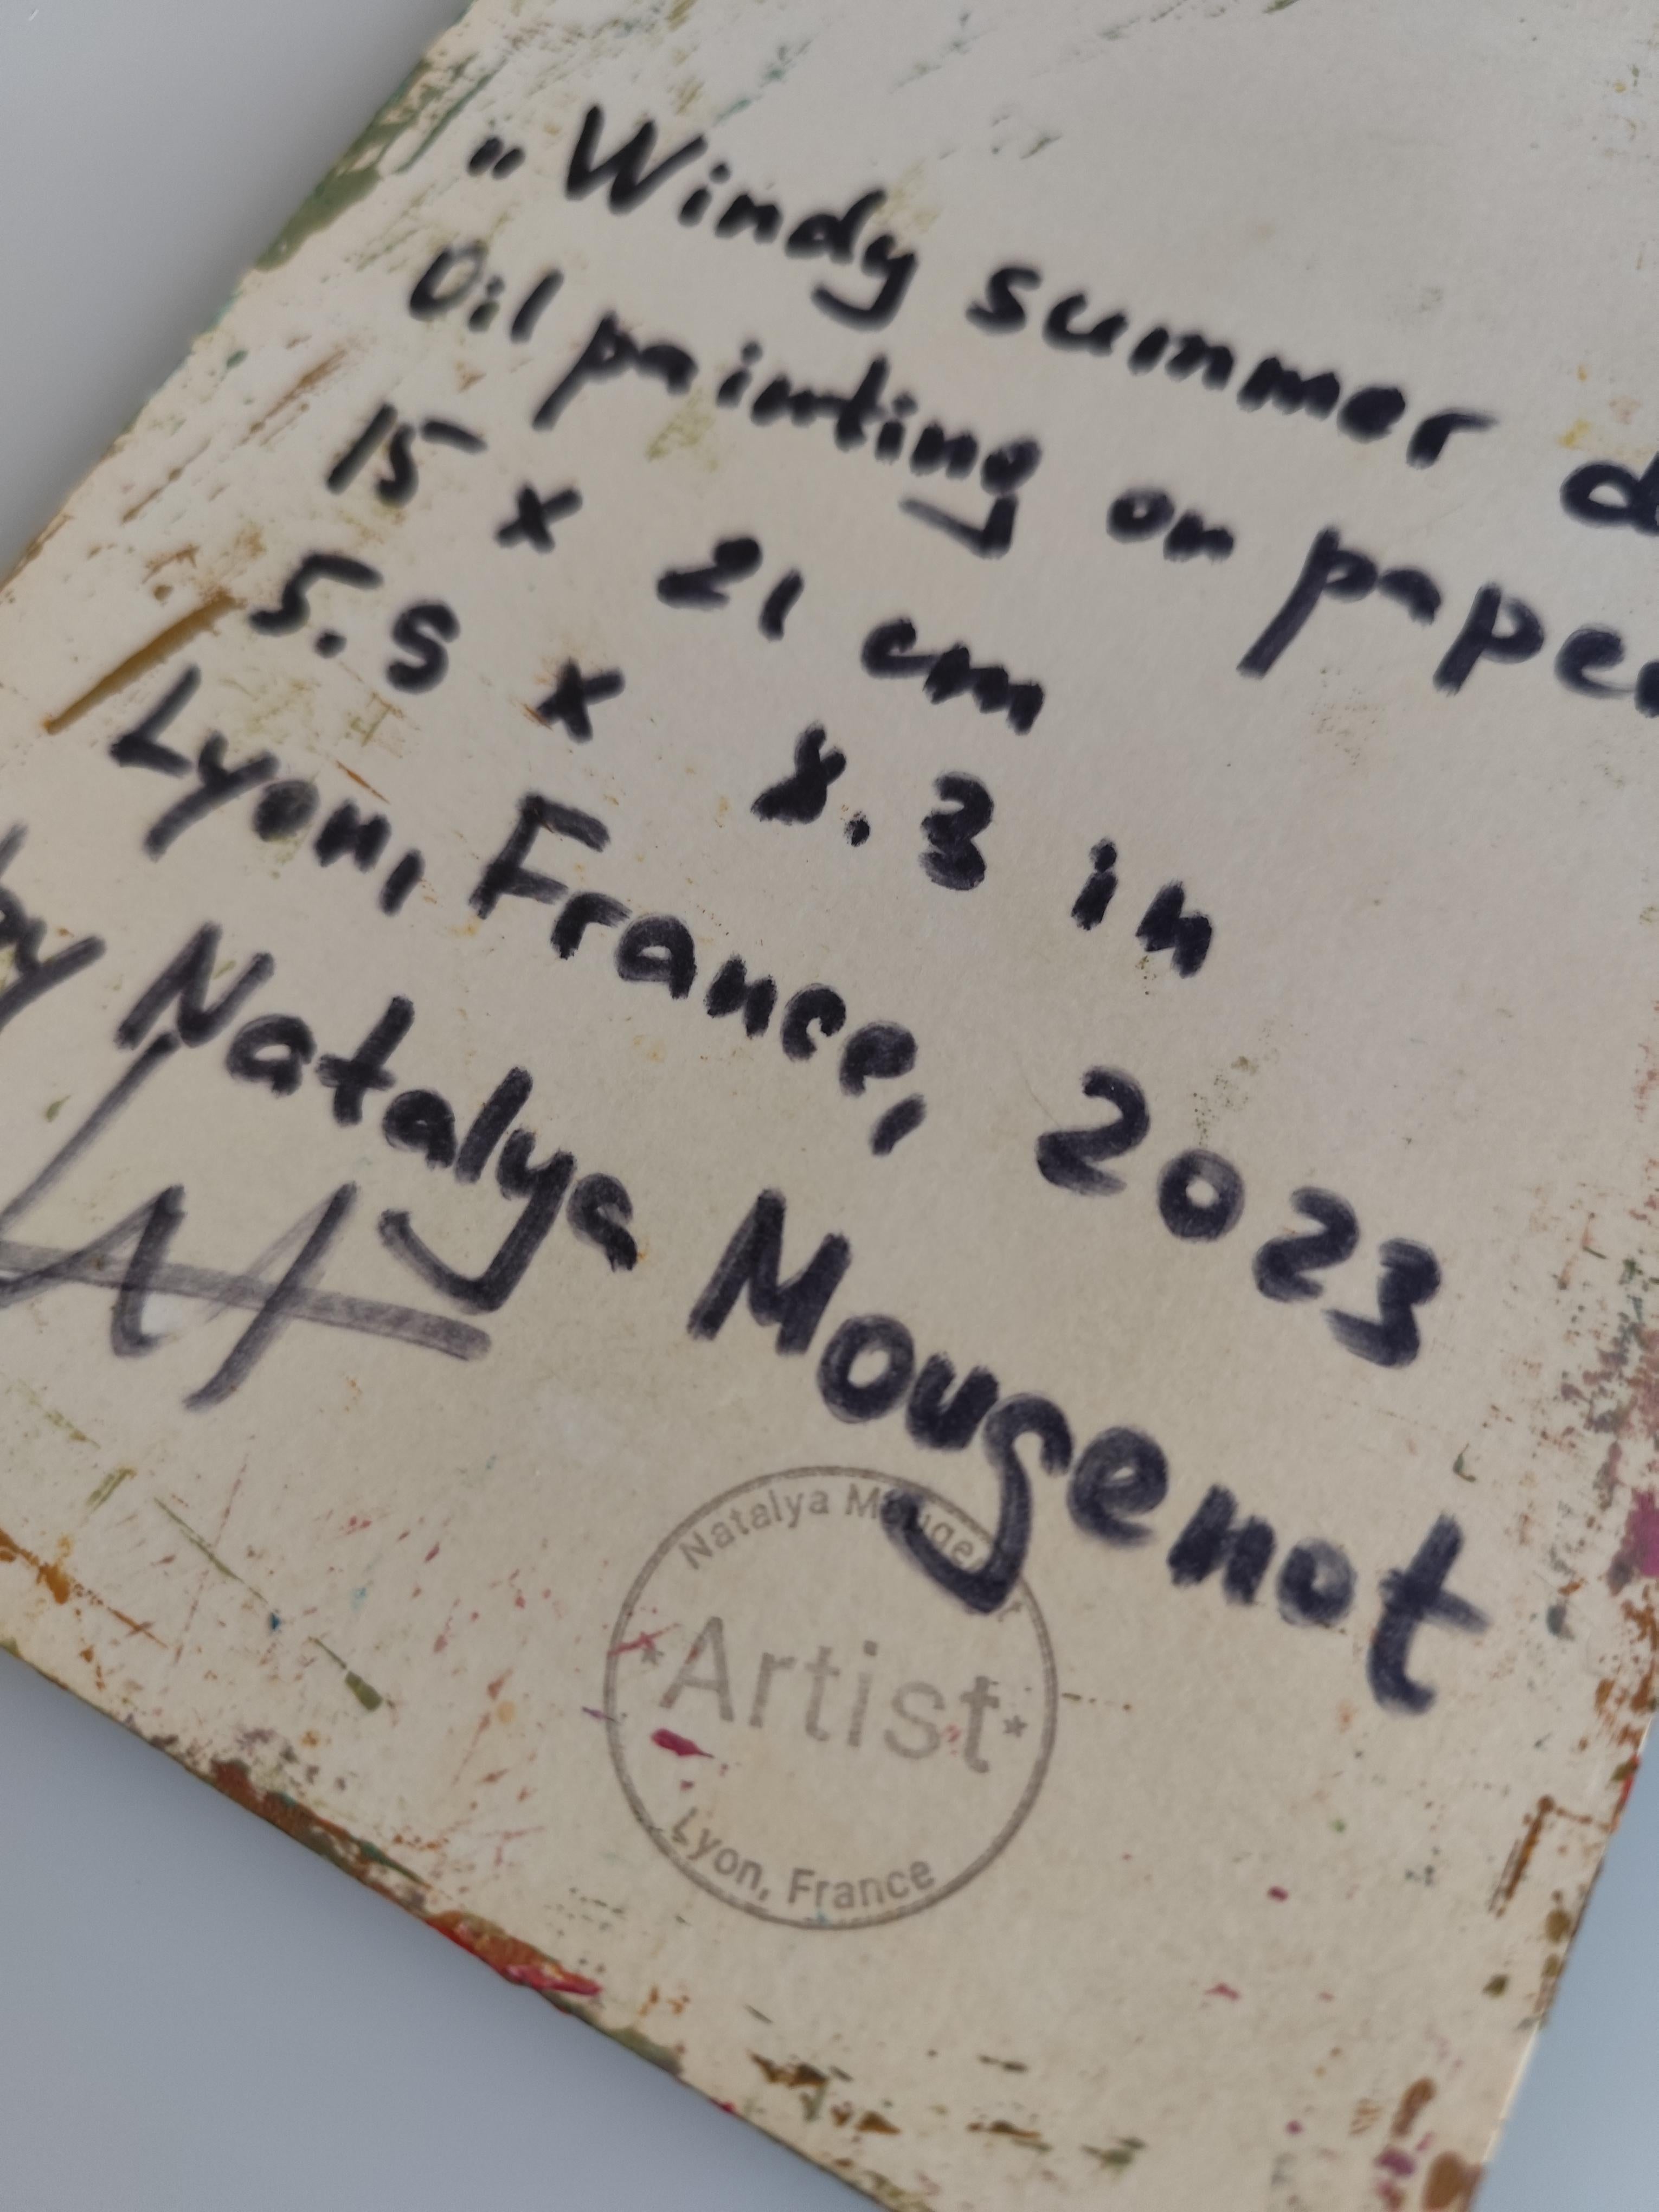 "Windy summer d
Oil painting on paper
15 x 21 cm
5.9 x 8.3 in
Lyon, France, 2023
by Natalya Mougenot
Natalya Mougenot
* Artist *
Lyon, France